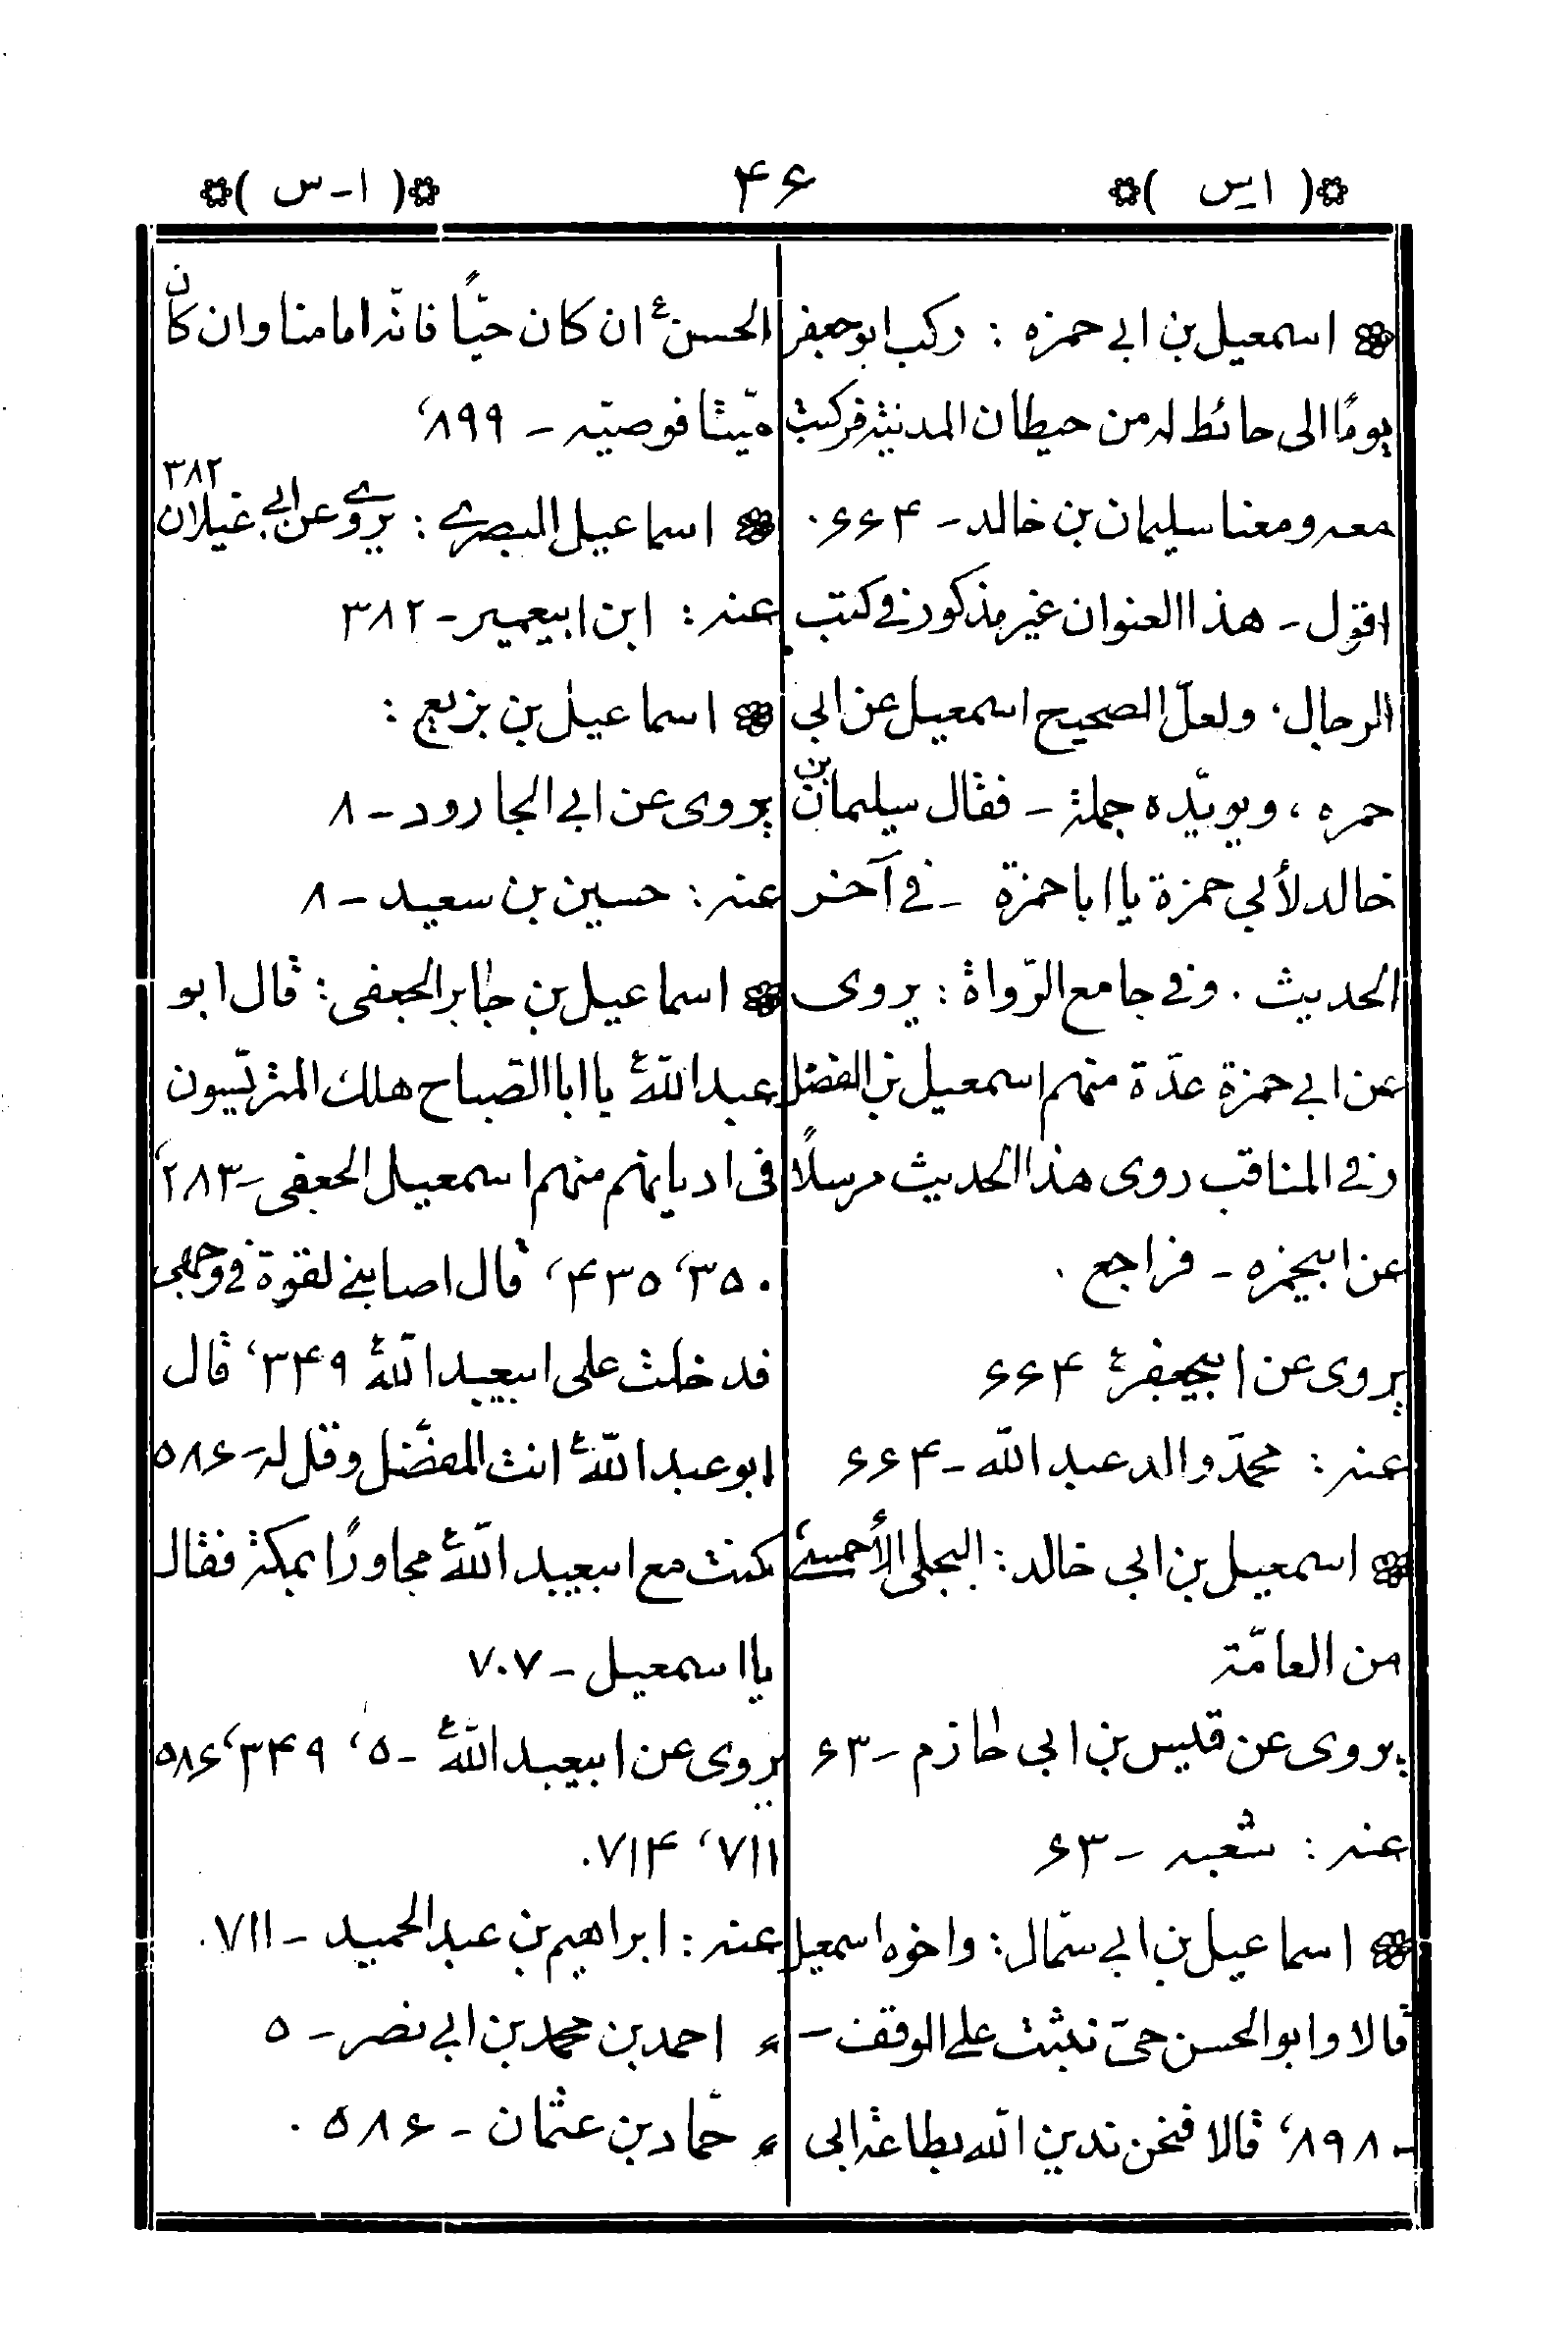 ❊( اس )❊ ۴۶ ❊( ا-س )❊
❊ اسمعیل بن ابی حمزه : رکب ابوجعفر
یومًا الی حائط له من حیطان المدینة فرکبت
معه و معنا سلیمان بن خالد - ۶۶۴ .
اقول - هذا العنوان غیر مذکور فی کتب
الرجال ، ولعلّ الصحیح اسمعیل عن ابی
حمزه ، ویویّده جملة - فقال سلیمان بن
خالد لأبی حمزة یا ابا حمزة - فی آخر
الحدیث . وفی جامع الرّواة : یروی
عن ابی حمزة عدّة منهم اسمعیل بن الفضل
و فی المناقب روی هذا الحدیث مرسلًا
عن ابیحمزه - فراجع .
یروی عن ابیجعفر ؑ ۶۶۴
عنه : محمّد والد عبد اللّه - ۶۶۴
❊ اسمعیل بن ابی خالد : البجلی الأحمسی
من العامّة
یروی عن قیس بن ابی حازم - ۶۳
عنه : شعبه - ۶۳
❊ اسماعیل بن ابی سمّال : واخوه اسمعیل
قالا وابوالحسن حیّ نثبت علی الوقف -
- ۸۹۸، قالا فنحن ندین اللّه بطاعة ابی
الحسن ؑ ان کان حیًّا فانّه امامنا وان کان
میّتا فوصیّه - ۸۹۹،
❊ اسماعیل البصری : یروی عن ابی غیلان ۳۸۲
عنه : ابن ابیعمیر - ۳۸۲
❊ اسماعیل بن بزیع :
یروی عن ابی الجارود - ۸
عنه : حسین بن سعید - ۸
❊ اسماعیل بن جابر الجعفی : قال ابو
عبد اللّه ؑ یا ابا الصباح هلك المتریّسون
فی ادیانهم منهم اسمعیل الجعفی - ۲۸۳،
۳۵۰، ۴۳۵، قال اصابنی لقوة فی وجهی
فدخلت علی ابیعبد اللّه ؑ ۳۴۹، قال
ابو عبد اللّه ؑ ائت المفضّل وقل له - ۵۸۶
کنت مع ابیعبد اللّه ؑ مجاورًا بمکة فقال
یا اسمعیل - ۷۰۷
یروی عن ابیعبد اللّه ؑ - ۵، ۳۴۹، ۵۸۶
۷۱۱، ۷۱۴ .
عنه : ابراهیم بن عبد الحمید - ۷۱۱ .
ء احمد بن محمد بن ابی نصر - ۵
ء حمّاد بن عثمان - ۵۸۶ .